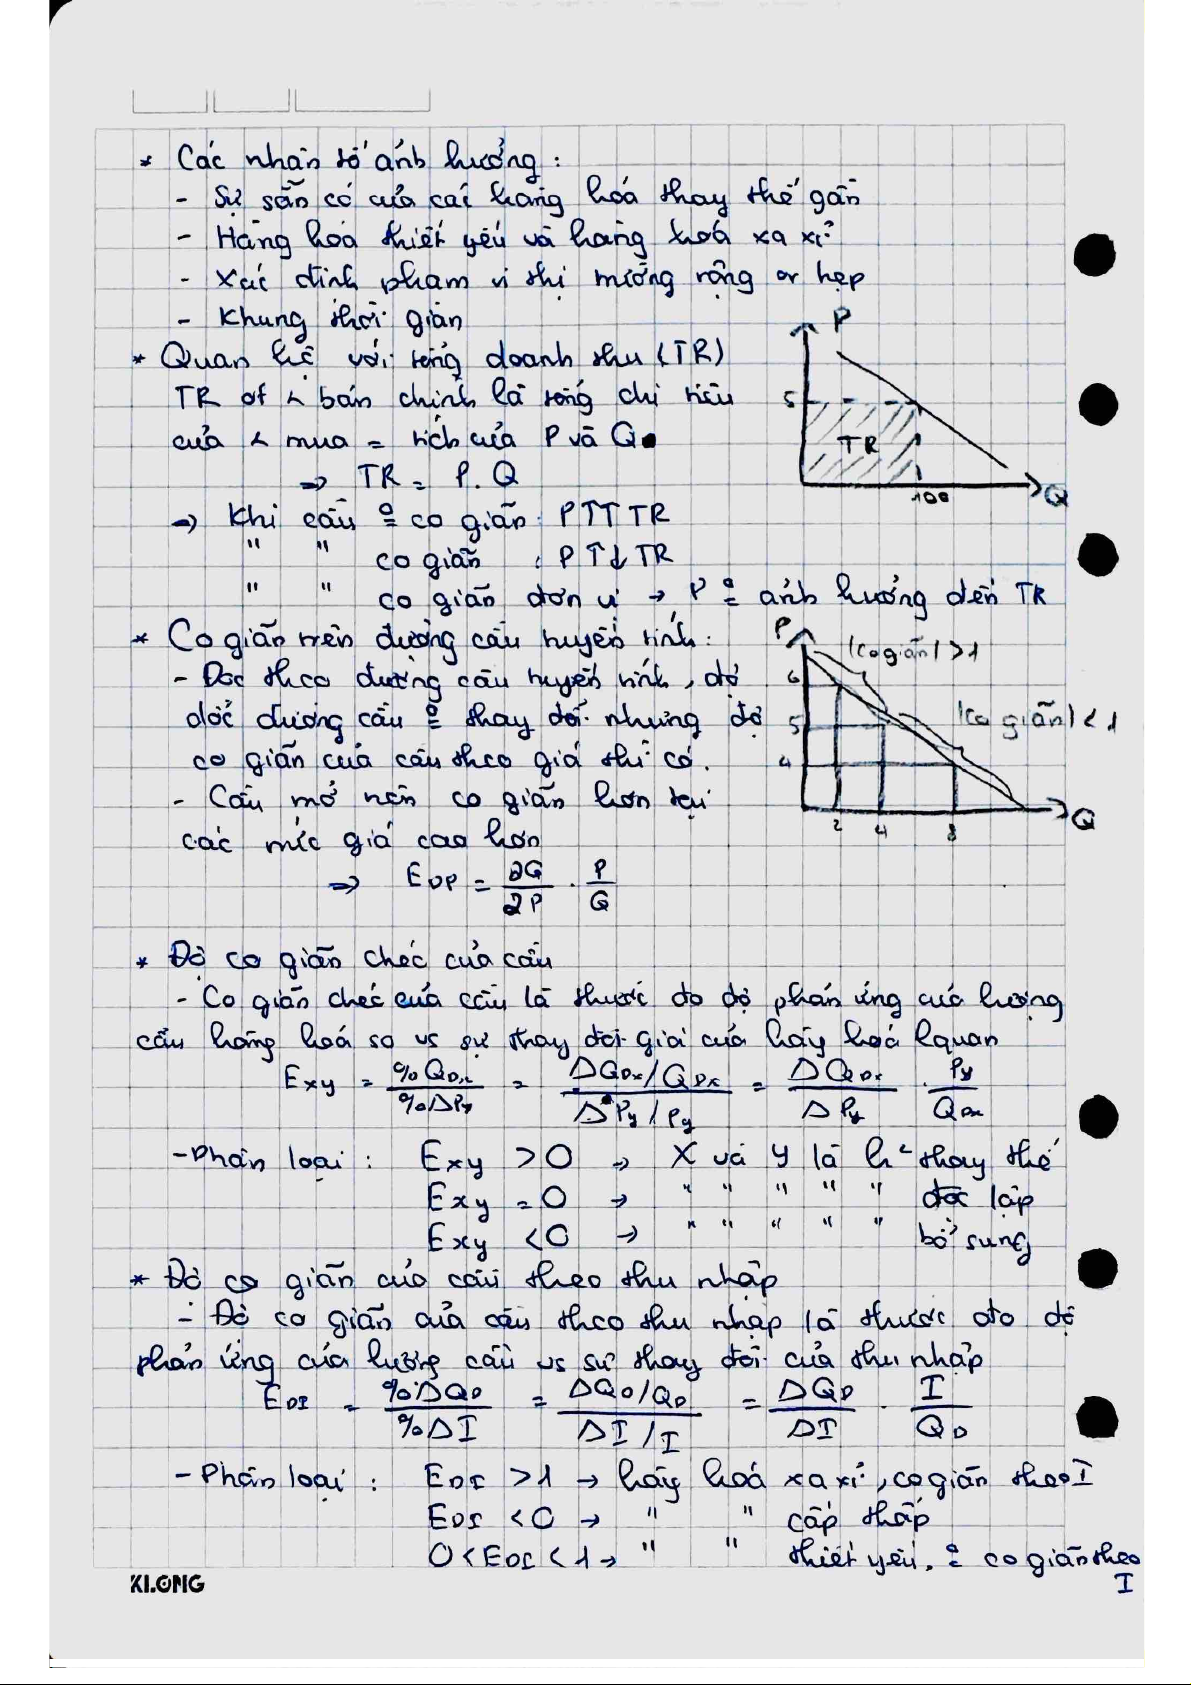 * Các nhân tố ảnh hưởng :
- Sự sẵn có của các hàng hoá thay thế gần
- Hàng hoá thiết yếu và hàng hoá xa xỉ
- Xác định phạm vi thị trường rộng or hẹp
- Khung thời gian
* Quan hệ với tổng doanh thu (TR)
TR of < bán chính là tổng chi tiêu
của < mua = tích của P và Q
⇒ TR = P.Q
P
5
TR
100
Q
⇒ Khi cầu co giãn : P↑↑TR
" " co giãn : P↑↓TR
" " co giãn đơn vị → P ảnh hưởng đến TR
* Co giãn trên đường cầu tuyến tính :
- Dọc theo đường cầu tuyến tính, độ
dốc đường cầu thay đổi nhưng độ
co giãn của cầu theo giá thì có.
- Cầu trở nên co giãn hơn tại
các mức giá cao hơn
⇒ EDP = ∂Q/∂P . P/Q
P
|co giãn| > 1
|co giãn| < 1
6
5
4
2 4 8
Q
* Độ co giãn chéo của cầu
- Co giãn chéo của cầu là thước đo độ phản ứng của lượng
cầu hàng hoá so vs sự thay đổi giá của hàg hoá lquan
Exy = %QD,x / %ΔPy = ΔQDx/QDx / ΔPy/Py = ΔQDx / ΔPy . Py / QDx
- Phân loại : Exy > 0 → X và y là h² thay thế
Exy = 0 → " " " " " độc lập
Exy < 0 → " " " " " bổ sung
* Độ co giãn của cầu theo thu nhập
- Độ co giãn của cầu theo thu nhập là thước đo độ
phản ứng của lượng cầu vs sự thay đổi của thu nhập
EDI = %ΔQD / %ΔI = ΔQD/QD / ΔI/I = ΔQD / ΔI . I / QD
- Phân loại : EDI > 1 → hàg hoá xa xỉ, co giãn theo I
EDI < 0 → " " cấp thấp
0 < EDI < 1 → " " thiết yếu, co giãn theo
I
KLONG